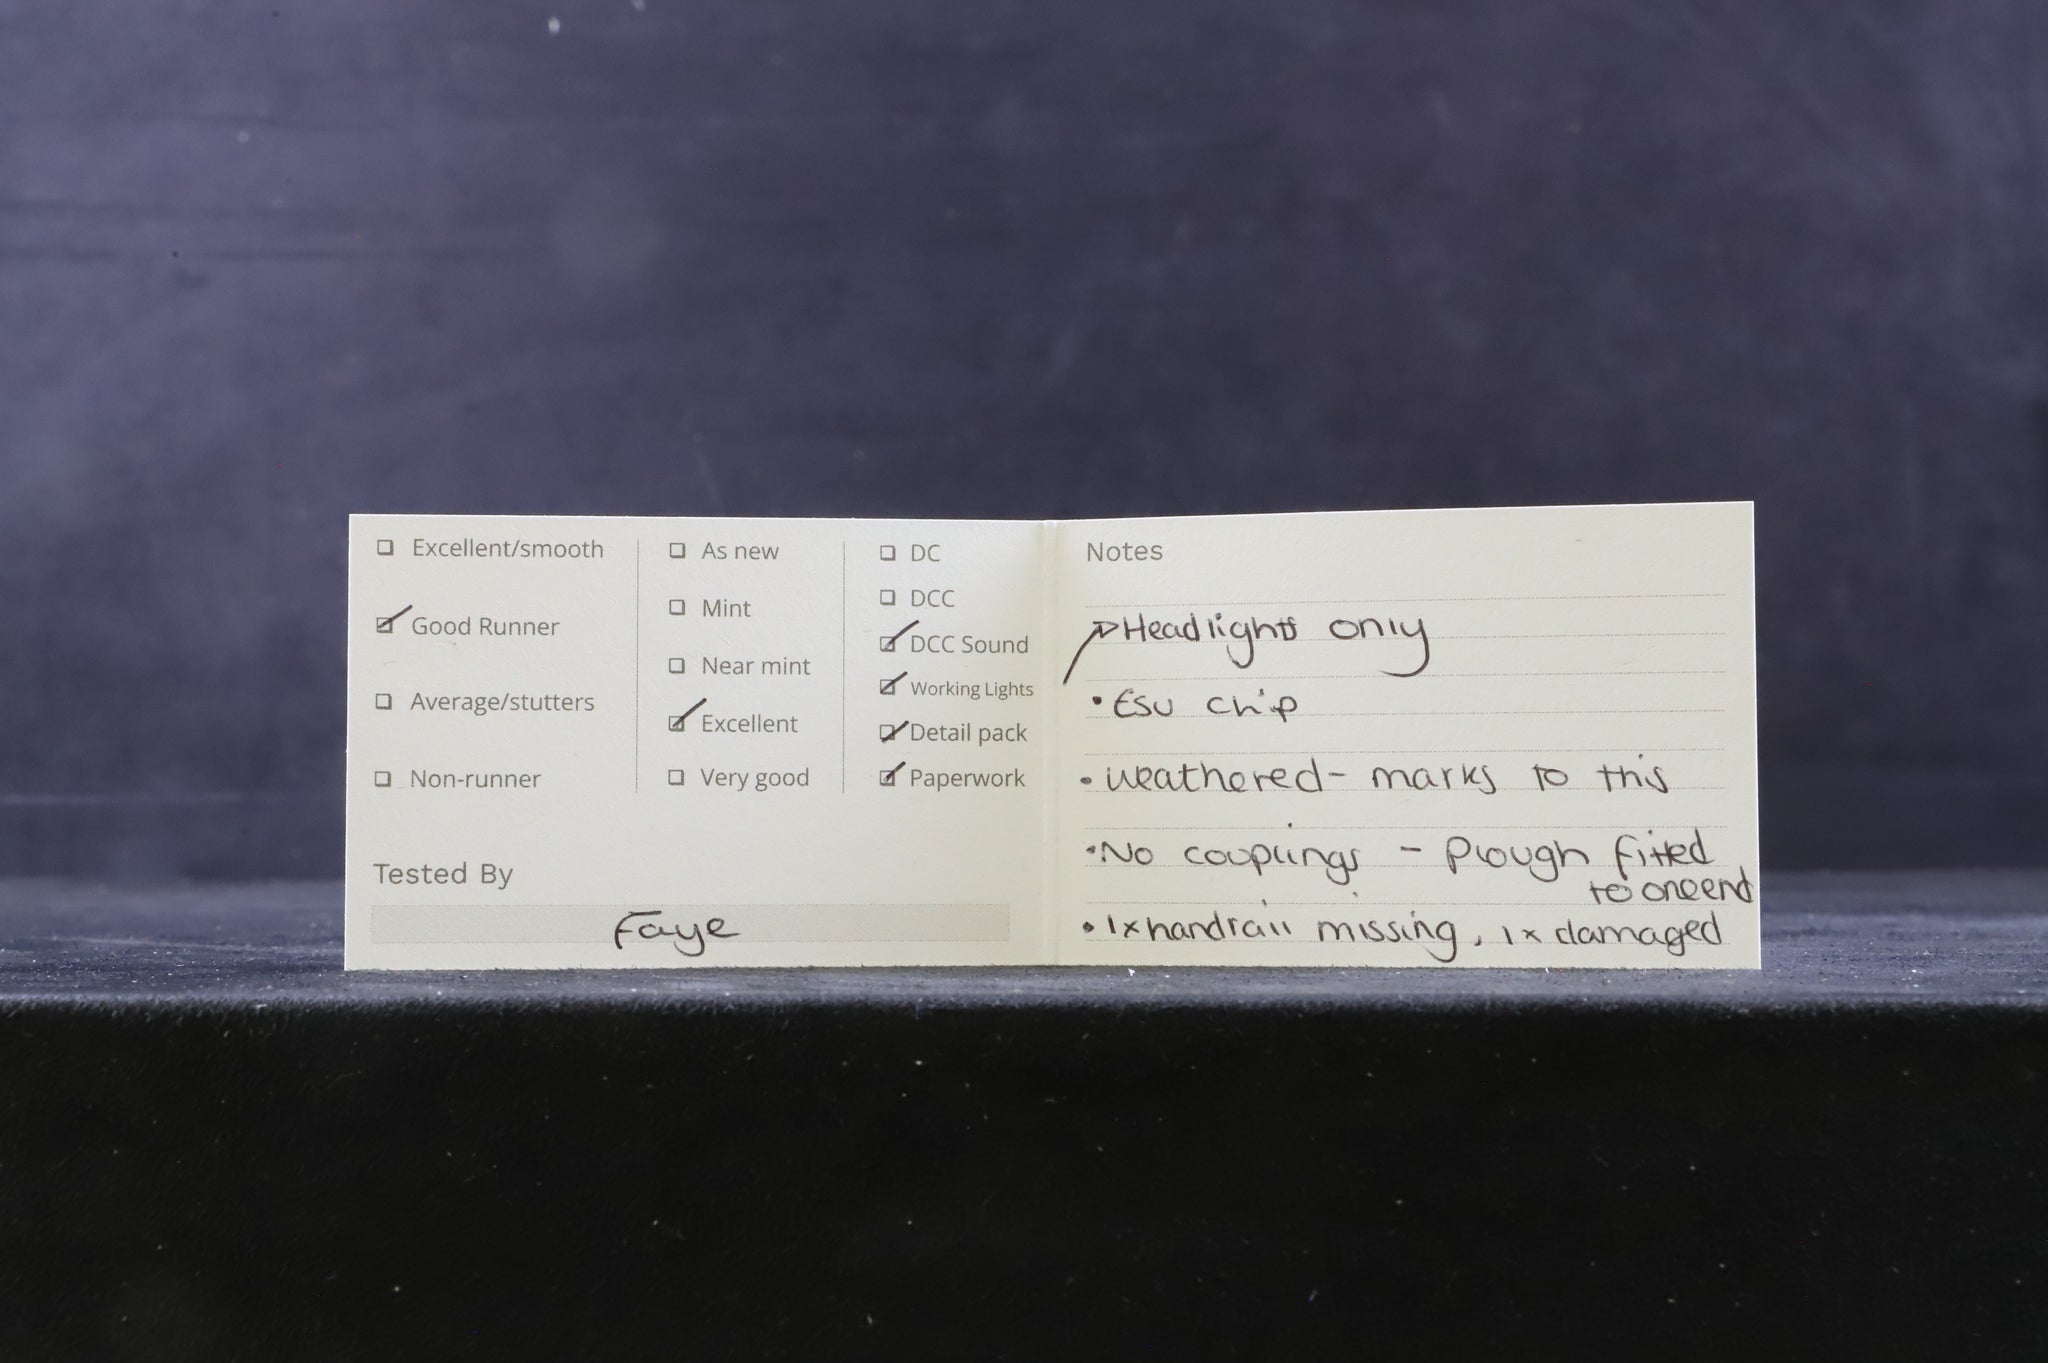 Excellent/smooth
Good Runner
Average/stutters
Non-runner
As new
Mint
Near mint
Excellent
Very good
DC
DCC
DCC Sound
Working Lights
Detail pack
Paperwork
Tested By
Faye
Notes
Headlights only
• Esu chip
• weathered - marks to this
• No couplings - Plough fitted
to one end
• 1x handrail missing, 1x damaged